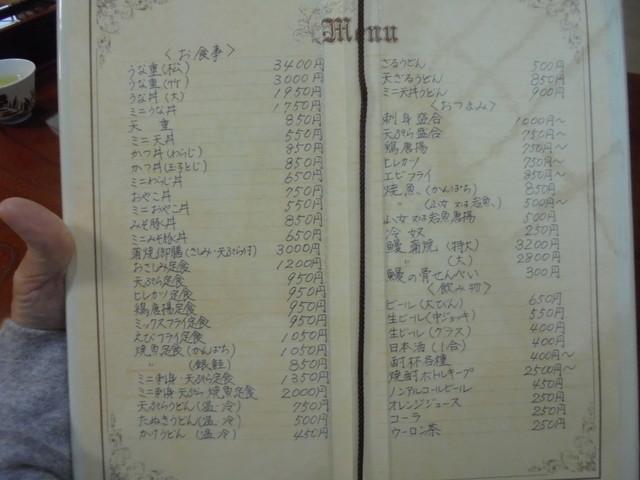 Menu
〈お食事〉
うな重(松) 3400円
うな重(竹) 3000円
うな丼(大) 1950円
ミニうな丼 1750円
天重 850円
ミニ天丼 550円
かつ丼(わらじ) 850円
かつ丼(玉子とじ) 850円
ミニわらじ丼 650円
おやこ丼 750円
ミニおやこ丼 550円
みそ豚丼 850円
ミニみそ豚丼 650円
蒲焼御膳(さしみ・天ぷら付) 3000円
おさしみ定食 1200円
天ぷら定食 950円
ヒレカツ定食 950円
鶏唐揚定食 950円
ミックスフライ定食 950円
えびフライ定食 1050円
焼魚定食(かんぱち) 1050円
〃(銀鮭) 850円
ミニ刺身・天ぷら定食 1350円
ミニ刺身・天ぷら・焼魚定食 2000円
天ぷらうどん(温・冷) 750円
たぬきうどん(温・冷) 500円
かけうどん(温・冷) 450円
ざるうどん 500円
天ざるうどん 850円
ミニ天丼うどん 900円
〈おつまみ〉
刺身盛合 1000円〜
天ぷら盛合 750円〜
鶏唐揚 750円〜
ヒレカツ 750円〜
エビフライ 850円〜
焼魚(かんぱち) 850円
〃(山女又は岩魚) 500円〜
山女又は岩魚唐揚 500円
冷奴 250円
鰻蒲焼(特大) 3200円
〃(大) 2800円
鰻の骨せんべい 300円
〈飲み物〉
ビール(大びん) 650円
生ビール(中ジョッキ) 550円
生ビール(グラス) 400円
日本酒(1合) 400円
酎杯各種 400円〜
焼酎ボトルキープ 2500円〜
ノンアルコールビール 450円
オレンジジュース 250円
コーラ 250円
ウーロン茶 250円